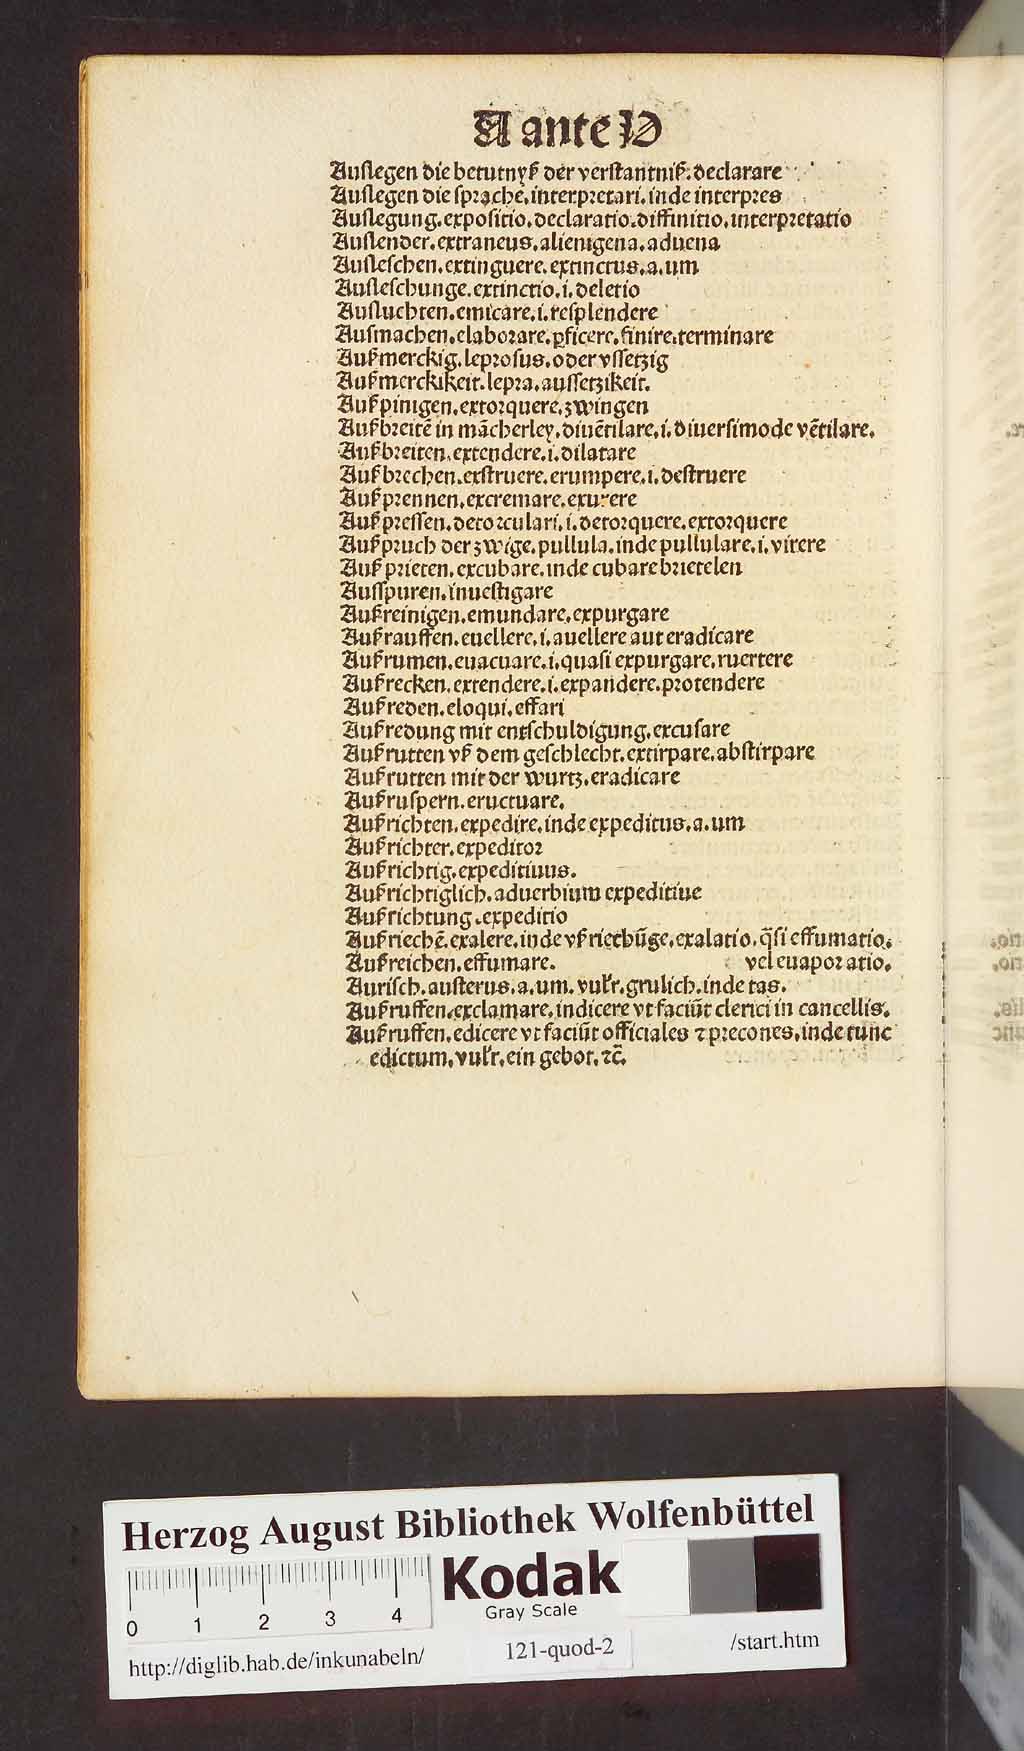 A ante V
Auſlegen die betutnyß der verſtantniß. declarare
Auſlegen die ſprache. interpretari. inde interpres
Auſlegung. expoſitio. declaratio. diffinitio. interpretatio
Auſlender. extraneus. alienigena. aduena
Auſleſchen. extinguere. extinctus. a. um
Auſleſchunge. extinctio. i. deletio
Auſluchten. emicare. i. reſplendere
Auſmachen. elaborare. ꝑficere. finire. terminare
Außmerckig. leproſus. oder vſſetzig
Außmerckikeit. lepra. auſſetzikeit.
Außpinigen. extorquere. zwingen
Außbreitē in mācherley. diuētilare. i. diuerſimode vētilare.
Außbreiten. extendere. i. dilatare
Außbrechen. exſtruere. erumpere. i. deſtruere
Außprennen. excremare. exurere
Außpreſſen. detorculari. i. detorquere. extorquere
Außpruch der zwige. pullula. inde pullulare. i. virere
Außprieten. excubare. inde cubare brietelen
Auſſpuren. inueſtigare
Außreinigen. emundare. expurgare
Außrauffen. euellere. i. auellere aut eradicare
Außrumen. euacuare. i. quaſi expurgare. ruertere
Außrecken. extendere. i. expandere. protendere
Außreden. eloqui. effari
Außredung mit entſchuldigung. excuſare
Außrutten vß dem geſchlecht. extirpare. abſtirpare
Außrutten mit der wurtz. eradicare
Außruſpern. eructuare.
Außrichten. expedire. inde expeditus. a. um
Außrichter. expeditor
Außrichtig. expeditiuus.
Außrichtiglich. aduerbium expeditiue
Außrichtung. expeditio
Außriechē. exalere. inde vßriechūge. exalatio. q̄ſi effumatio.
Außreichen. effumare. vel euaporatio.
Auriſch. auſterus. a. um. vulꝛ. grulich. inde tas.
Außruffen. exclamare. indicere vt faciūt clerici in cancellis.
Außruffen. edicere vt faciūt officiales ⁊ precones. inde tunc
edictum. vulꝛ. ein gebot. ⁊c̄.
Herzog August Bibliothek Wolfenbüttel
Kodak
Gray Scale
0 1 2 3 4
http://diglib.hab.de/inkunabeln/ 121-quod-2 /start.htm